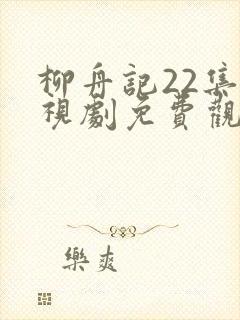 柳舟記22集
視劇免費觀
樂爽